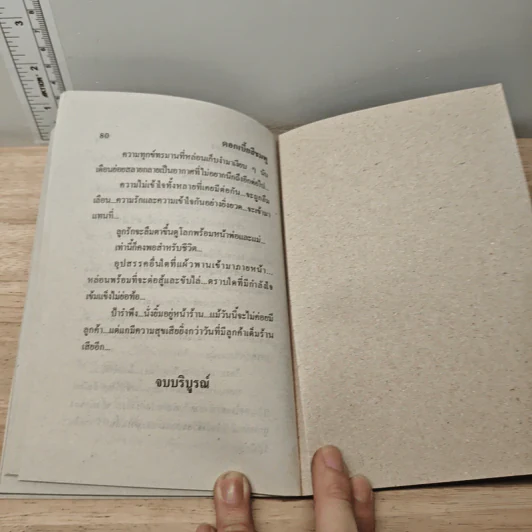 80
ดอกเบี้ยสีชมพู
ความทุกข์ทรมานที่หล่อนเก็บงำมาเงียบ ๆ นับ
เดือนย่อยสลายกลายเป็นอากาศที่ไม่อยากนึกถึงอีกต่อไป...
ความไม่เข้าใจทั้งหลายที่เคยมีต่อกัน...จะถูกลืม
เลือน...ความรักและความเข้าใจกันอย่างยิ่งยวด...จะเข้ามา
แทนที่...
ลูกรักจะลืมตาขึ้นดูโลกพร้อมหน้าพ่อและแม่...
เท่านี้ก็คงพอสำหรับชีวิต...
อุปสรรคอื่นใดที่แผ้วพานเข้ามาภายหน้า...
หล่อนพร้อมที่จะต่อสู้และขับไล่...ตราบใดที่มีกำลังใจ
เข้มแข็งไม่ย่อท้อ...
ป้ารำพึง...นั่งยิ้มอยู่หน้าร้าน...แม้วันนี้จะไม่ค่อยมี
ลูกค้า...แต่แกมีความสุขเสียยิ่งกว่าวันที่มีลูกค้าเต็มร้าน
เสียอีก...
จบบริบูรณ์
3
2
1